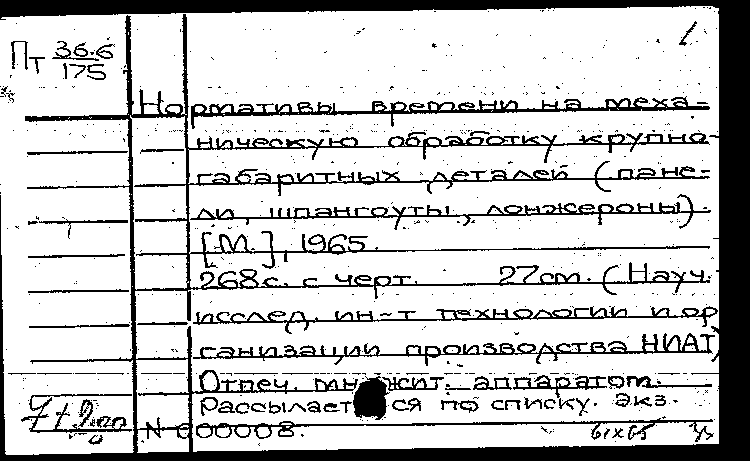 Пт 36.6
175
Нормативы времени на меха-
ническую обработку крупно-
габаритных деталей (пане-
ли, шпангоуты, лонжероны).
[М.], 1965.
268с. с черт. 27см. (Науч.
исслед. ин-т технологии и ор
ганизации производства НИАТ)
Отпеч. множит. аппаратом.
Рассылается по списку. Экз.
N 000008.
61х65